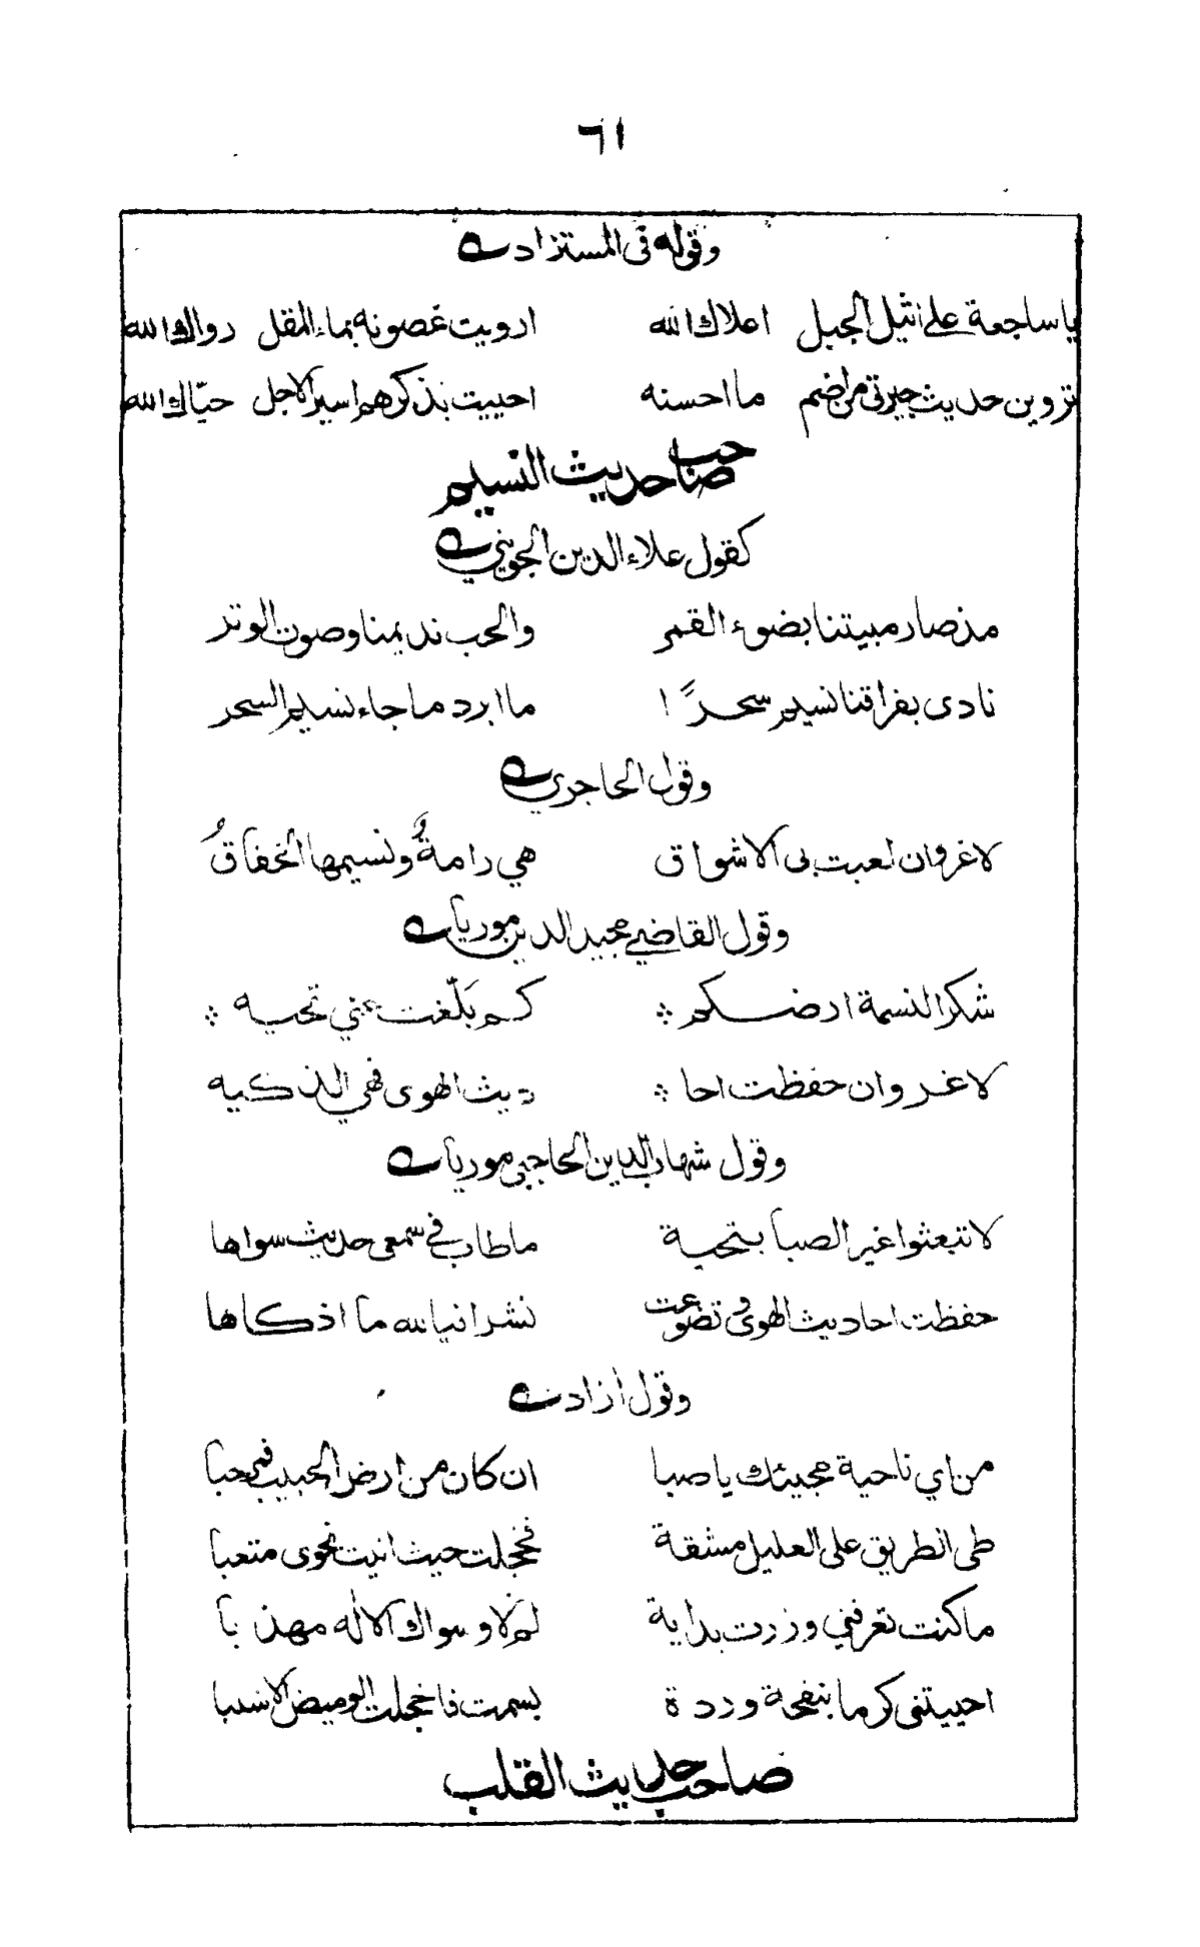 ٦١
وقوله فى المستزاد
يا ساجعة على اثيل الجبل اعلاك الله ارويت غصونه بماء المقل رواك الله
تروين حديث جيرتى من اضم ما احسنه احييت بذكرهم اسير الاجل حيّاك الله
صاحب حديث النسيم
كقول علاء الدين الجويني
مذ صار مبيتنا بضوء القمر والحب نديمنا وصوت الوتر
نادى بفراقنا نسيم سحرًا ما ابرد ما جاء نسيم السحر
وقول الحاجري
لاغروان لعبت بى الاشواق هي رامةٌ ونسيمها الخفاقُ
وقول القاضي مجيد الدين موريا
شكرا لنسمة ارضكم كم بلّغت عني تحيه
لاغروان حفظت احا ديث الهوى فهي الذكيه
وقول شهاب الدين الحاجبي موريا
لا تبعثوا غير الصبا بتحية ما طاب في سمعى حديث سواها
حفظت احاديث الهوى وتضوعت نشرا فيالله ما اذكاها
وقول ازاد
من اي ناحية مجيئك يا صبا ان كان من ارض الحبيب فمرحبا
طى الطريق على العليل مشقة فخجلت حيث اتيت نحوى متعبا
ما كنت تعرفني وزرت بداية لم لا وسواك الاله مهذبا
احييتنى كرما بنفحة وردة بسمت فاخجلت الوميض الاشنبا
صاحب حديث القلب